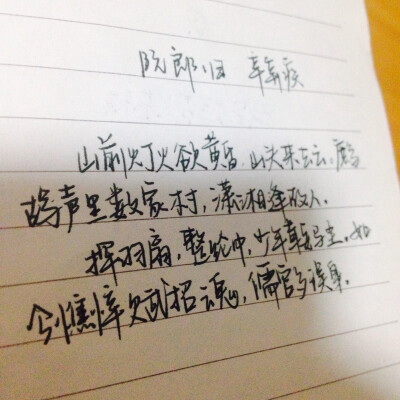 阮郎归 辛弃疾
山前灯火欲黄昏,山头来去云,鹧
鸪声里数家村,潇湘逢故人。
挥羽扇,整纶巾,少年鞍马尘。如
今憔悴赋招魂,儒冠多误身。